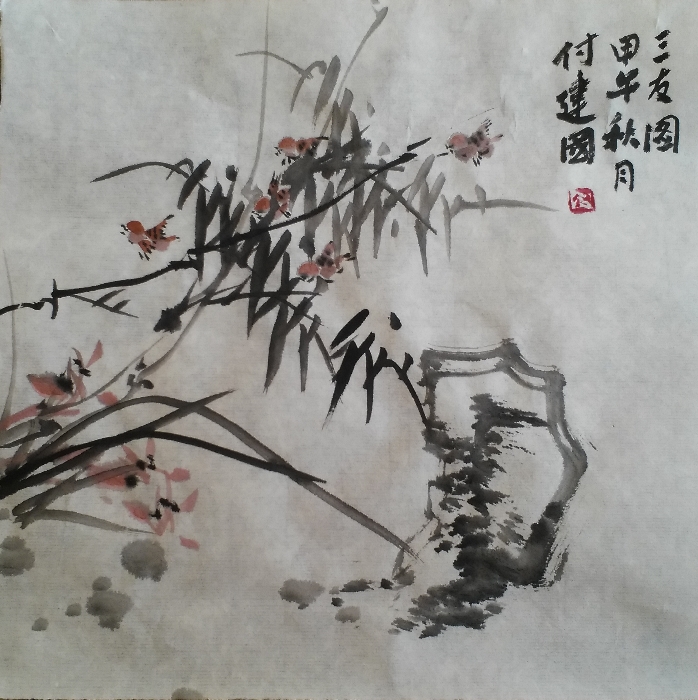 三友图
甲午秋月
付建國